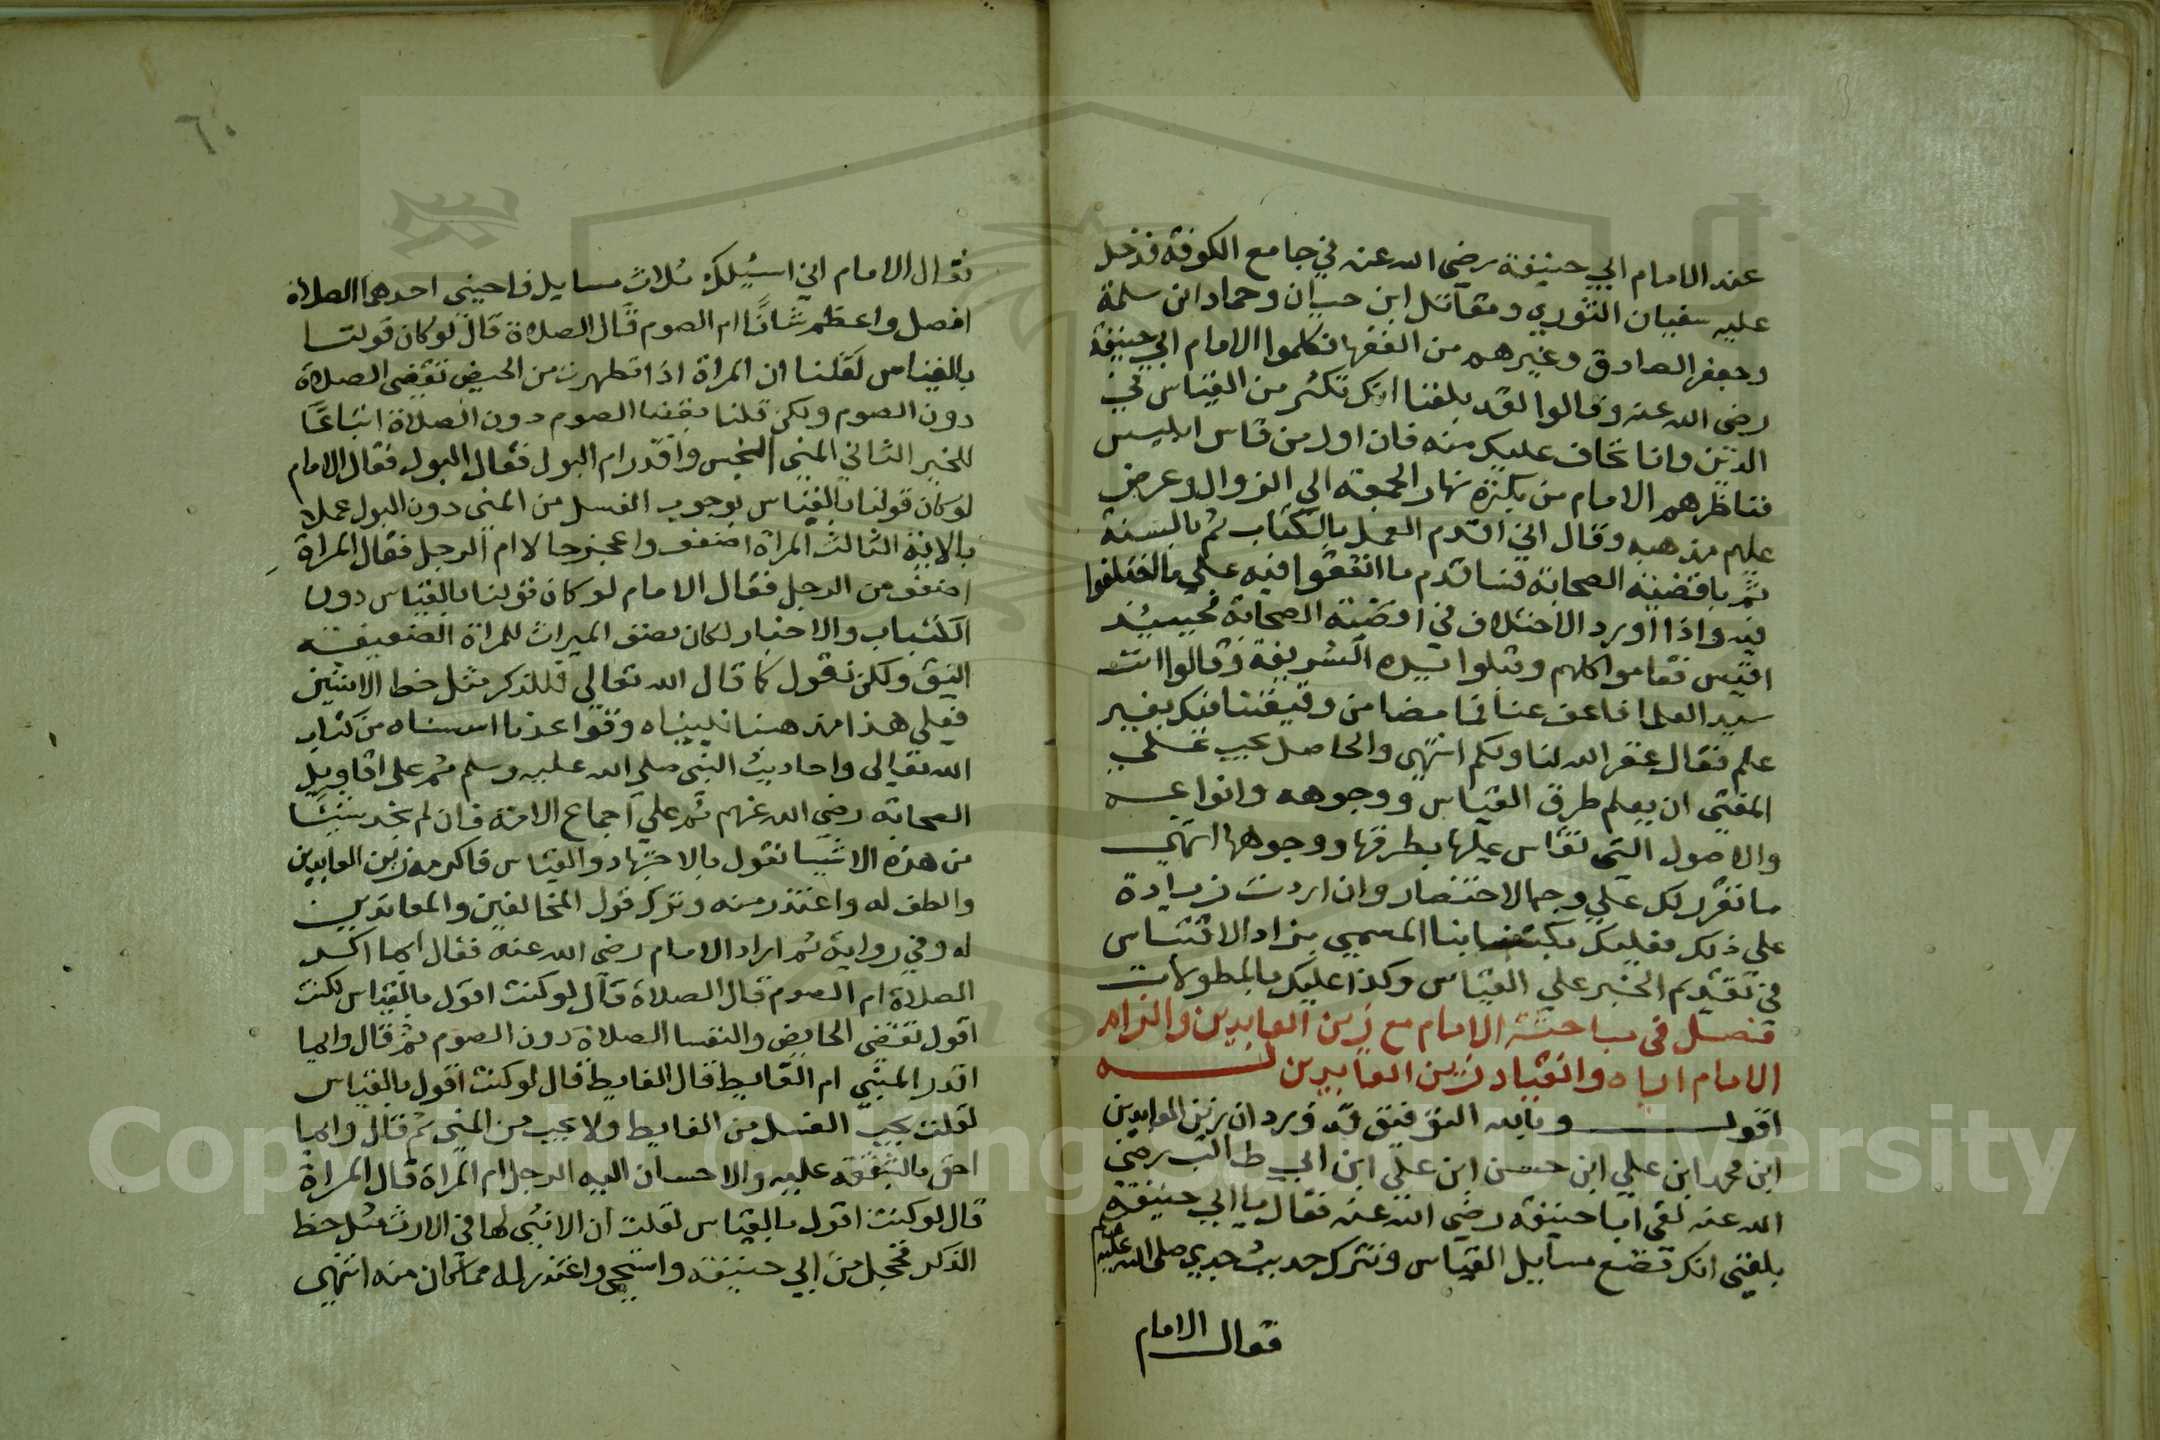 عند الامام ابي حنيفة رضي الله عنه في جامع الكوفة فدخل
عليه سفيان الثوري ومقاتل ابن حسان وحماد ابن سلمة
وجعفر الصادق وغيرهم من الفقها فكلموا الامام ابي حنيفة
رضي الله عنه وقالوا لقد بلغنا انك تكثر من القياس في
الدين وانا نخاف عليك منه فان اول من قاس ابليس
فناظرهم الامام من بكرة نهار الجمعة الي الزوال وعرض
عليهم مذهبه وقال اني اقدم العمل بالكتاب ثم بالسنة
ثم باقضية الصحابة فنا قدم ما اتفقوا فيه علي ما اختلفوا
فيه واذا اورد الاختلاف في اقضية الصحابة فحييئذ
اقيس فقاموا كلهم وقبلوا يده الشريفة وقالوا انت
سيد العلما فاعف عنا فيما مضا من وقيعتنا فيك بغير
علم فقال غفر الله لنا ولكم انتهي والحاصل يجب علي
المفتي ان يعلم طرق القياس ووجوهه وانواعه
والاصول التي تقاس عليها بطرقها ووجوهها انتهي
ما تقرر لك علي وجه الاختصار وان اردت زيادة
علي ذلك فعليك بكتابنا المسمي بزاد الاقتباس
في تقديم الخبر علي القياس وكذا عليك بالمطولات
فصل في مباحثة الامام مع زين العابدين والزام
الامام اياه وانقياد زين العابدين له
اقول وبالله التوفيق قد ورد ان زين العابدين
ابن محمد ابن علي ابن حسن ابن علي ابن ابي طالب رضي
الله عنه لقي ابا حنيفة رضي الله عنه فقال يا ابي حنيفة
بلغني انك تضع مسايل القياس وتترك حديث جدي صلي الله عليه
فقال الامام
٦٠
فقال الامام اني اسئيلك ثلاث مسايل فاجبني احدها الصلاة
افضل واعظم شانا ام الصوم قال الصلاة قال لو كان قولنا
بالقياس لقلنا ان المراة اذا تطهرت من الحيض تقضي الصلاة
دون الصوم ولكن قلنا بقضا الصوم دون الصلاة اتباعا
للخبر الثاني المني انجس واقذر ام البول فقال البول فقال الامام
لو كان قولنا بالقياس بوجوب الغسل من المني دون البول عملا
بالاية الثالث المراة اضعف واعجز حالا ام الرجل فقال المراة
اضعف من الرجل فقال الامام لو كان قولنا بالقياس دون
الكتاب والاخبار لكان نصف الميراث للمراة الضعيفه
اليق ولكن نقول كما قال الله تعالي فللذكر مثل حظ الانثيين
فعلي هذا مذهبنا بنيناه وقواعدنا اسسناه من كتاب
الله تعالي واحاديث النبي صلي الله عليه وسلم ثم علي اقاويل
الصحابة رضي الله عنهم ثم علي اجماع الامة فان لم نجد شيئا
من هذه الاشيا نقول بالاجتهاد والقياس فاكرمه زين العابدين
والطف له واعتذر منه وترك قول المخالفين والمعاندين
له وفي رواية ثم اراد الامام رضي الله عنه فقال ايما اكد
الصلاة ام الصوم قال الصلاة قال لو كنت اقول بالقياس لكنت
اقول تقضي الحايض والنفسا الصلاة دون الصوم ثم قال وايما
اقذر المني ام الغايط قال الغايط قال لو كنت اقول بالقياس
لقلت يجب الغسل من الغايط ولا يجب من المني ثم قال وايما
احق بالشفقة عليه والاحسان اليه الرجل ام المراة قال المراة
قال لو كنت اقول بالقياس لقلت ان الانثي لها في الارث مثل حظ
الذكر فخجل من ابي حنيفة واستحي واعتذر له مما كان منه انتهي